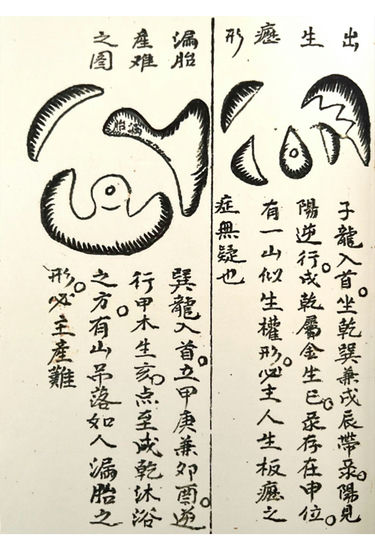 出
生
癧
形
子龍入首坐乾巽兼戌辰帶录陽見
陽逆行戌乾屬金生巳录存在申位
有一山似生權形必主人生板癧之
症無疑也
漏胎
產难
之圖
巽龍入首立甲庚兼卯酉逆
行甲木生亥点至戌乾沐浴
之方有山吊落如人漏胎之
形必主產難